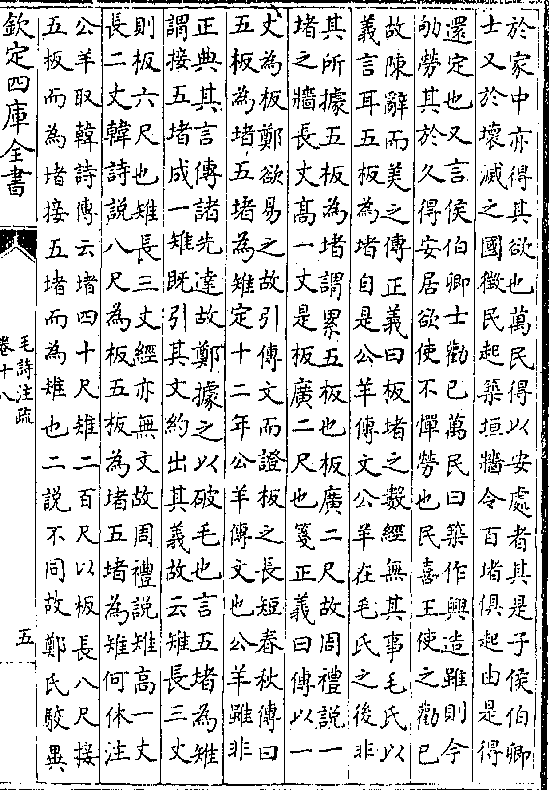 於家中亦得其欲也萬民得以安處者其是子侯伯卿
士又於壞滅之國徵民起築垣牆令百堵俱起由是得
還定也又言侯伯卿士勸已萬民曰築作興造雖則今
劬勞其於久得安居欲使不憚勞也民喜王使之勸已
故陳辭而美之傳正義曰板堵之數經無其事毛氏以
義言耳五板為堵自是公羊傳文公羊在毛氏之後非
其所據五板為堵謂累五板也板廣二尺故周禮說一
堵之牆長丈高一丈是板廣二尺也箋正義曰傳以一
丈為板鄭欲易之故引傳文而證板之長短春秋傳曰
五板為堵五堵為雉定十二年公羊傳文也公羊雖非
正典其言傳諸先達故鄭據之以破毛也言五堵為雉
謂接五堵成一雉既引其文約出其義故云雉長三丈
則板六尺也雉長三丈經亦無文故周禮說雉高一丈
長二丈韓詩說八尺為板五板為堵五堵為雉何休注
公羊取韓詩傳云堵四十尺雉二百尺以板長八尺接
五板而為堵接五堵而為雉也二說不同故鄭氏駮異
欽定四庫全書
毛詩注疏
卷十八
五